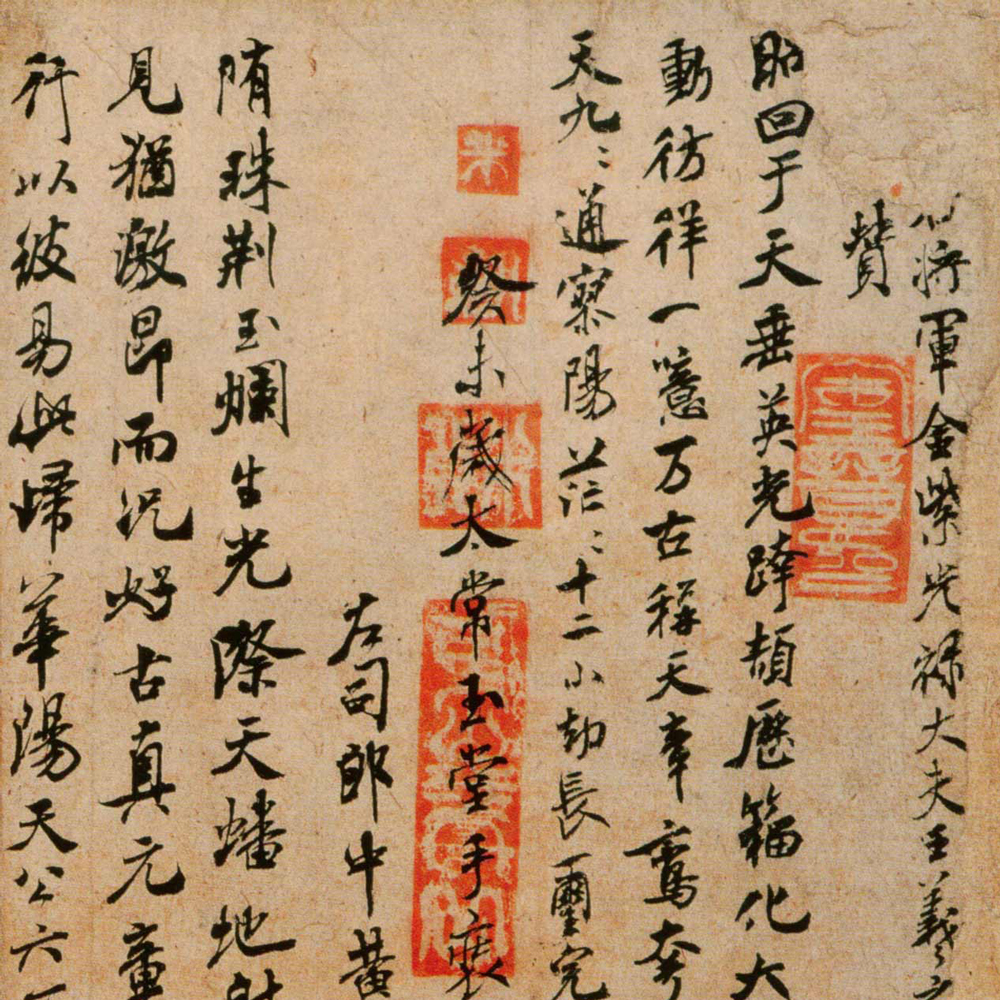 將軍金紫光祿大夫王羲
贊
昭回于天垂英光跨頡歷籀化大
動彷徉一噫万古稱天章鸞奔
天九〻通寥陽茫〻十二小劫長璽完
米
癸未歲太常玉堂手裝
左司郎中黃
隋珠荊玉爛生光際天蟠地
見猶激昂而況好古真元章
行以彼易此歸華陽天公六